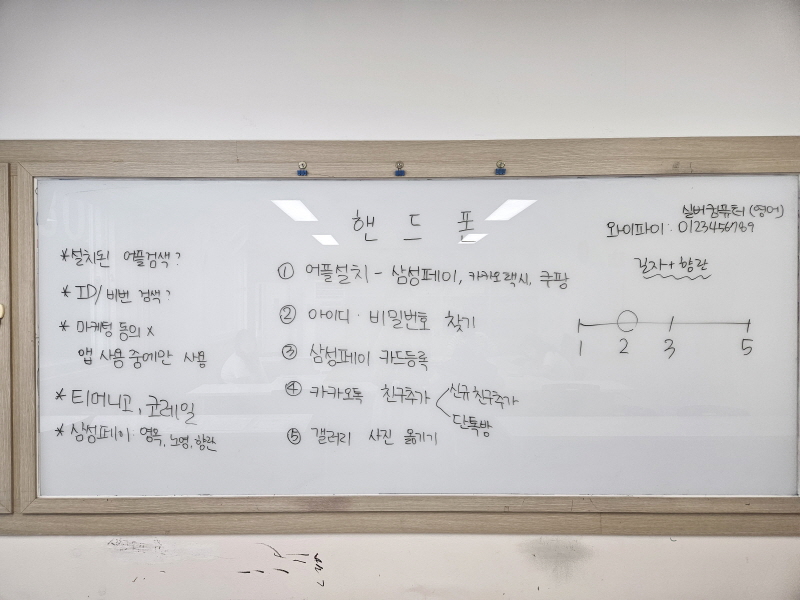 핸드폰
*설치된 어플검색?
*ID/비번 검색?
*마케팅 동의 x
앱 사용 중에만 사용
*티머니고, 코레일
*삼성페이 영옥, 노영, 향란
① 어플설치 - 삼성페이, 카카오택시, 쿠팡
② 아이디·비밀번호 찾기
③ 삼성페이 카드등록
④ 카카오톡 친구추가 < 신규친구추가
단톡방
⑤ 갤러리 사진 옮기기
실버컴퓨터(영어)
와이파이: 0123456789
길자+향란
1 2 3 5